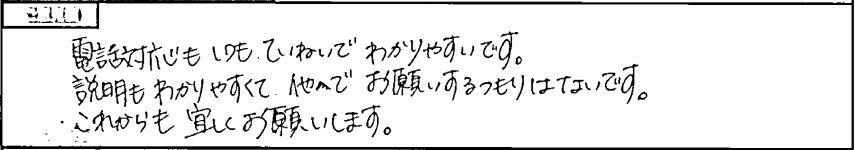 電話対応もいつもていねいでわかりやすいです。
説明もわかりやすくて、他へでお願いするつもりはないです。
これからも宜しくお願いします。